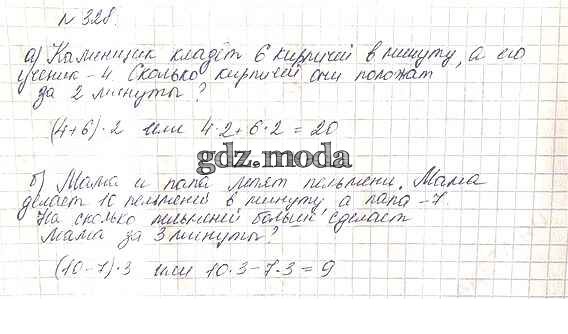 № 328.
а) Каменщик кладёт 6 кирпичей в минуту, а его
ученик - 4. Сколько кирпичей они положат
за 2 минуты?
(4+6)·2 или 4·2+6·2=20
gdz.moda
б) Мама и папа лепят пельмени. Мама
делает 10 пельменей в минуту, а папа - 7.
На сколько пельменей больше сделает
мама за 3 минуты?
(10-7)·3 или 10·3-7·3=9